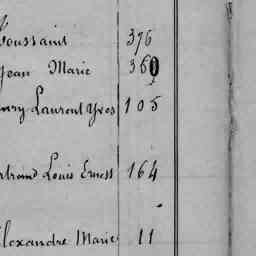 Toussaint 376
Jean Marie 360
Laurent Yves 105
Louis Ernest 164
Alexandre Marie 11